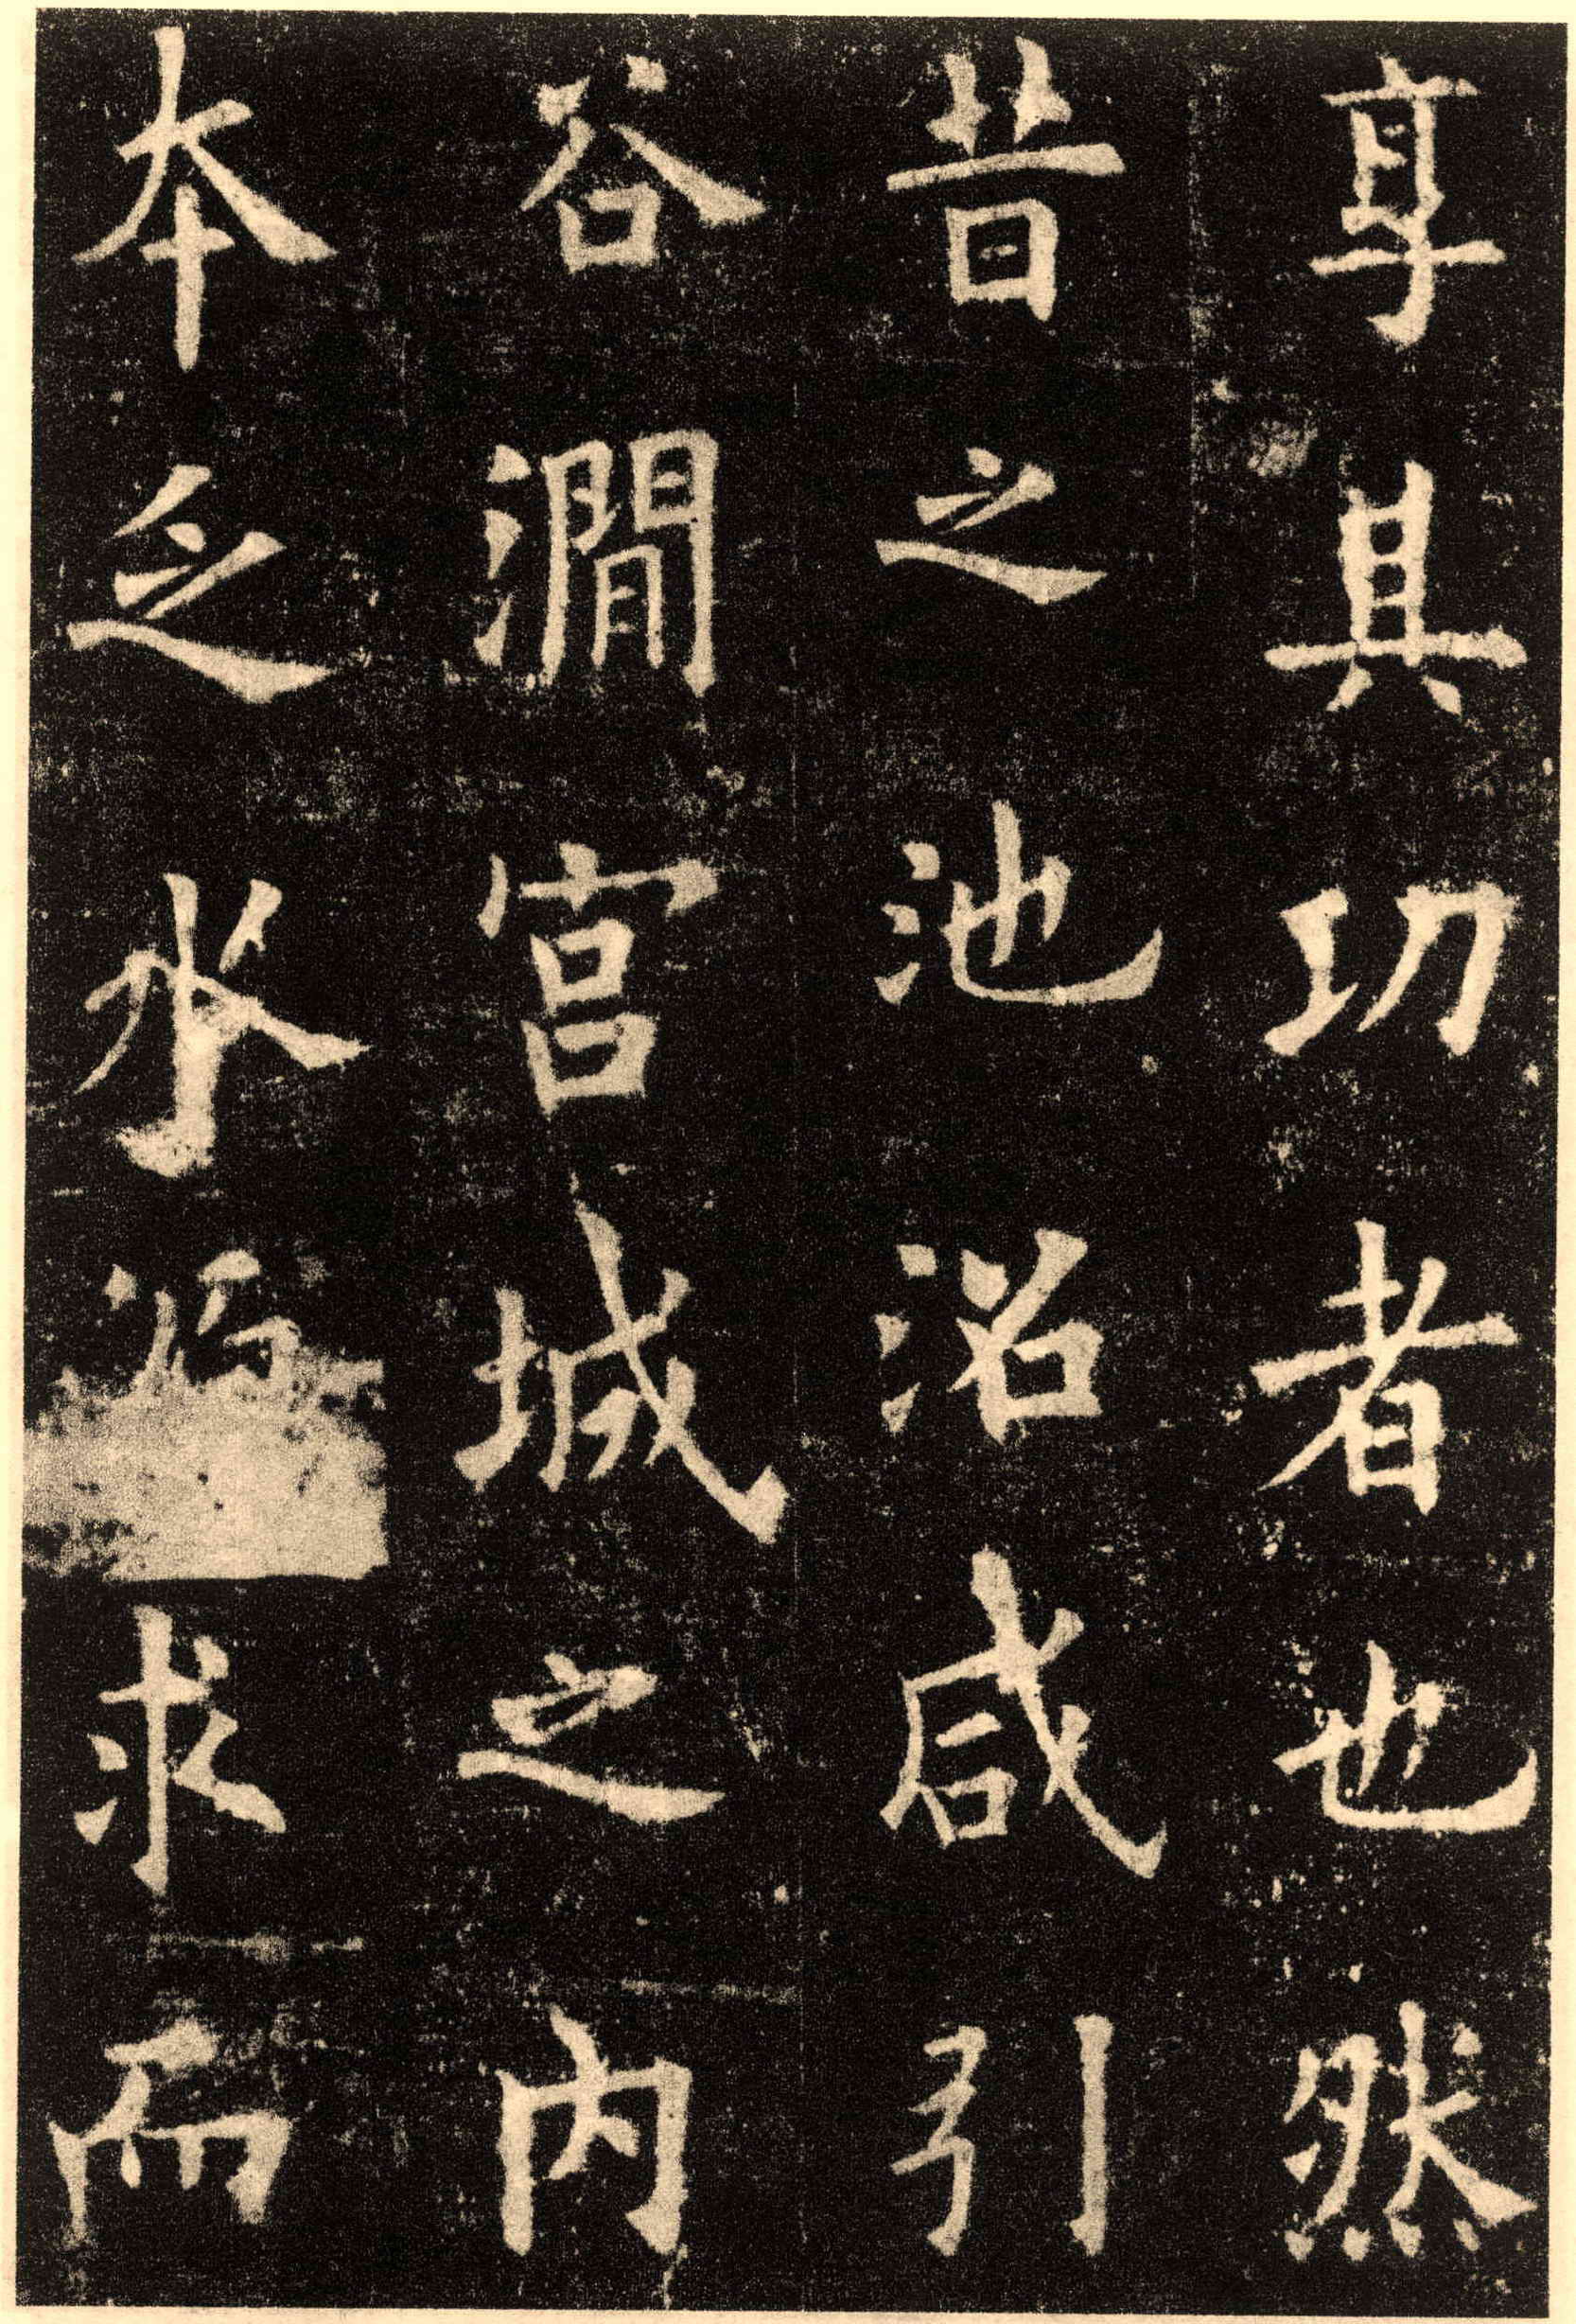 享其功者也然
昔之池沼咸引
谷澗宮城之内
本之水求而